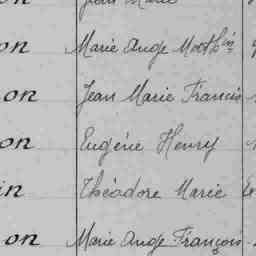 Jean Marie
on Marie Ange Mathin
on Jean Marie Francis
on Eugéne Henry
in Théodore Marie
on Marie Ange François